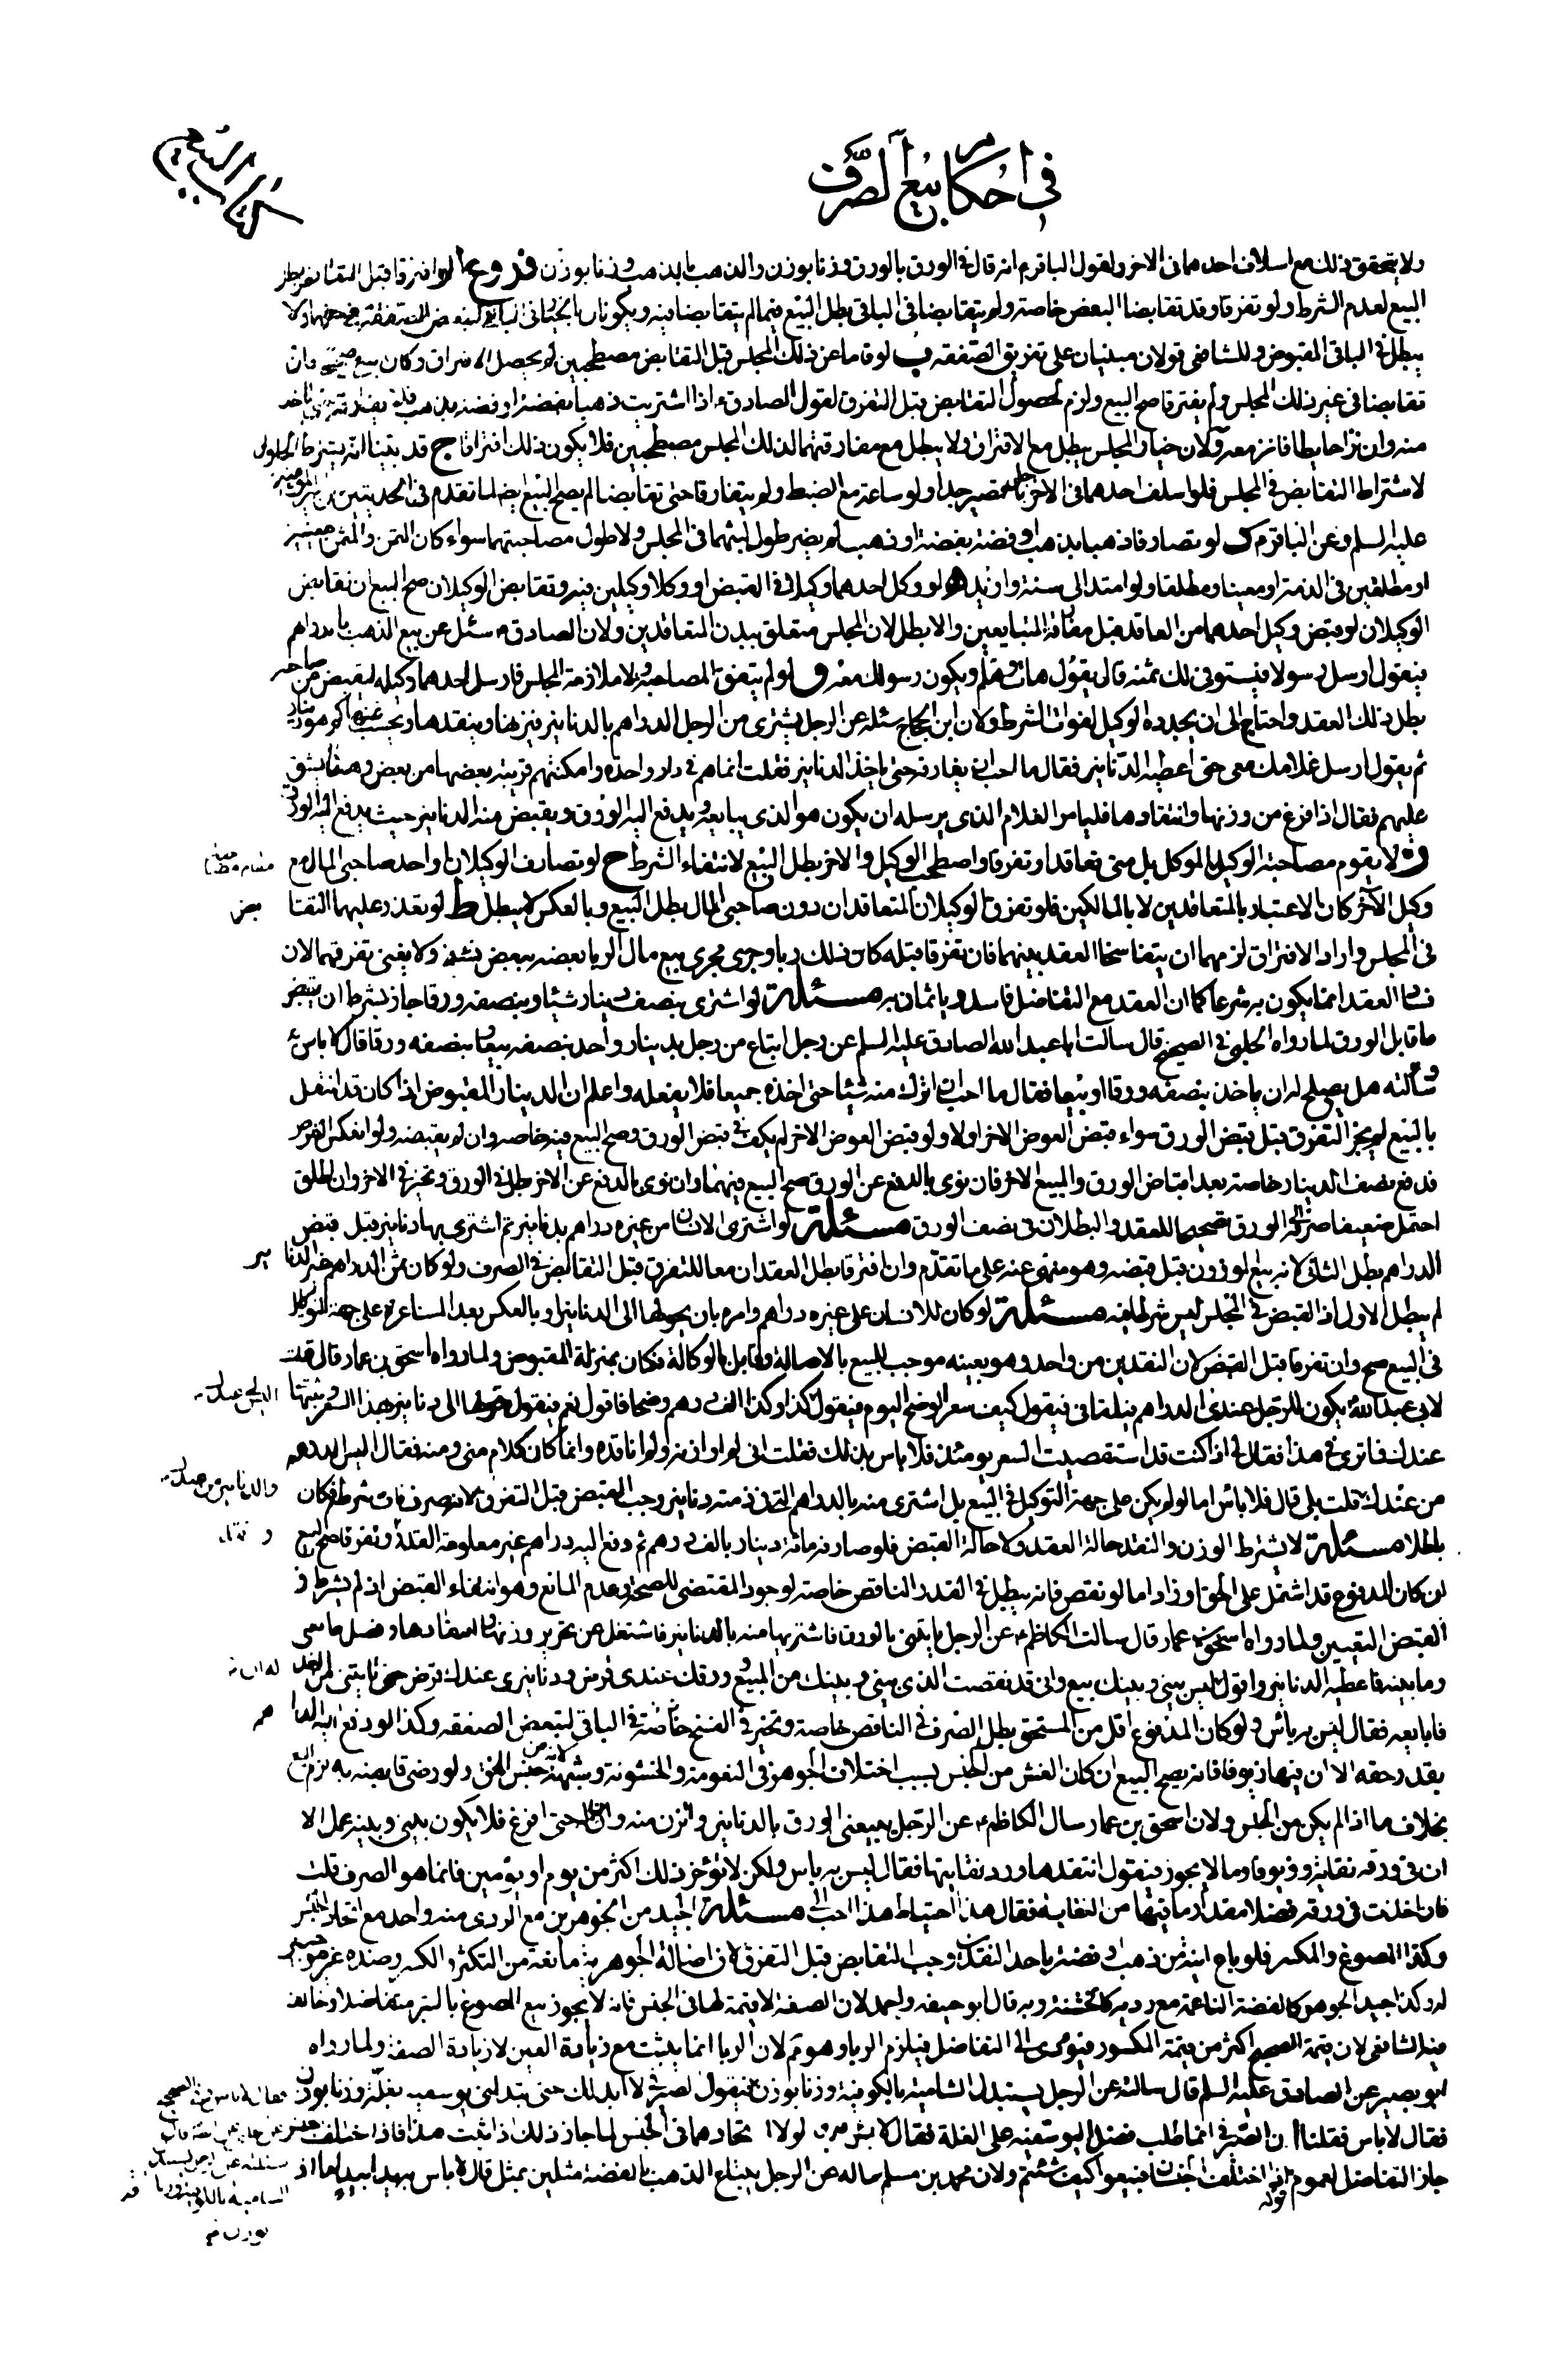 كتاب البيع
في احكام بيع الصرف
ولا يتحقق ذلك مع اسلاف احدهما في الاخر ولقول الباقر م انه قال في الورق بالورق وزنا بوزن والذهب بالذهب وزنا بوزن فروع ا لو افترقا قبل التقابض بطل
البيع لعدم الشرط ولو تفرقا وقد تقابضا البعض خاصة ولم يتقابضا في الباقي بطل البيع فيما لم يتقابضا فيه ويكونان بالخيار في الباقي لتبعض الصفقة في حقهما ولا
يبطل في الباقي المقبوض وللشافعي قولان مبنيان على تفريق الصفقه ب لو قاما عن ذلك المجلس قبل التقابض مصطحبين لم يحصل الافتراق وكان بيع صحيح وان
تقابضا في غير ذلك المجلس ولم يفترقا صح البيع ولزم لحصول التقابض قبل التفرق لقول الصادق ع اذا اشتريت ذهبا بفضة او فضة بذهب فلا يفارقه حتى تاخذ
منه وان نزا حايطا فانز معه ولان خيار المجلس يبطل مع الافتراق ولا يبطل مع مفارقتهما لذلك المجلس مصطحبين فلا يكون ذلك افتراقا ج قد بينا انه يشترط الحلول
لاشتراط التقابض في المجلس فلو اسلف احدهما في الاخر باجل قصير جدا ولو ساعة مع الضبط ولم يتفارقا حتى تقابضا لم يصح البيع ايضا لما تقدم في الحديثين عن امير المومنين
عليه السلم وعن الباقر م د لو تصارفا ذهبا بذهب او فضة بفضة او ذهب لم يضر طول لبثهما في المجلس ولا طول مصاحبتهما سواء كان الثمن والمثمن معينين
او مطلقين في الذمة او معينا ومطلقا ولو امتد الى سنة وازيد ه لو وكل احدهما وكيلا في القبض او وكلا وكيلين فيه وتقابض الوكيلان صح البيع ان تقابض
الوكيلان او قبض وكيل احدهما من العاقد قبل مفارقة المتبايعين والا بطل لان المجلس متعلق ببدن المتعاقدين ولان الصادق م سئل عن بيع الذهب بالدراهم
فيقول ارسل رسولا فيستوفي لك ثمنه قال يقول هات وهلم ويكون رسولك معه و لو لم يتفق المصاحبة ولا ملازمة المجلس فارسل احدهما وكيله ليقبض من صاحبه
بطل ذلك العقد واحتاج الى ان يجدده الوكيل لفوات الشرط ولان ابن الحجاج سئله عن الرجل يشترى من الرجل الدراهم بالدنانير فيزنها وينقدها ويحسب ثمنها كم هو دينار
ثم يقول ارسل غلامك معي حتى اعطيه الدنانير فقال ما احب ان يفارقه حتى ياخذ الدنانير فقلت انما هم في دار واحدة وامكنتهم قريبة بعضها من بعض وهذا يشق
عليهم فقال اذا فرغ من وزنها وانتقادها فليامر الغلام الذي يرسله ان يكون هو الذي يبايعه ويدفع اليه الورق ويقبض منه الدنانير حيث يدفع اليه الورق
ز لا يقوم مصاحبة الوكيل بالموكل بل متى تعاقدا وتفرقا واصطحب الوكيل والاخر بطل البيع لانتفاء الشرط ح لو تصارف الوكيلان او احد صاحبي المال مع
وكيل الآخر كان الاعتبار بالمتعاقدين لا بالمالكين فلو تفرق الوكيلان المتعاقدان دون صاحبي المال بطل البيع وبالعكس لا يبطل ط لو تعذر عليهما التقا
بض
في المجلس واراد الافتراق لزمهما ان يتفاسخا العقد بينهما فان تفرقا قبله كان ذلك ربا وجرى مجرى بيع مال الربا بعضه ببعض نسية ولا يغني تفرقهما لان
فساد العقد انما يكون به شرعا كما ان العقد مع التفاضل فاسد وياثمان به مسئلة لو اشترى بنصف دينار شيئا وبنصفه ورقا جاز بشرط ان يقبض
ما قابل الورق لما رواه الحلبي في الصحيح قال سالت ابا عبد الله الصادق عليه السلم عن رجل ابتاع من رجل بدينار واخذ بنصفه بيعا وبنصفه ورقا قال لا باس به
وسالته هل يصلح له ان ياخذ بنصفه ورقا او بيعا فقال ما احب ان اترك منه شيئا حتى اخذه جميعا فلا يفعله واعلم ان الدينار المقبوض اذا كان قد انتقل
بالبيع لم يجز التفرق قبل قبض الورق سواء قبض العوض الاخر او لا ولو قبض العوض الاخر لم يكف في قبض الورق وصح البيع فيه خاصة وان لم يقبضه ولو انعكس الفرض
فدفع نصف الدينار خاصة بعد اقباض الورق والمبيع الاخر فان نوى بالدفع عن الورق صح البيع فيهما وان نوى بالدفع عن الاخر بطل في الورق وتخير في الاخر وان اطلق
احتمل ضعيفا صرفه الى الورق تصحيحا للعقد والبطلان في نصف الورق مسئلة لو اشترى الانسان من غيره دراهم بدنانير ثم اشترى بها دنانير قبل قبض
الدراهم بطل الثاني لانه بيع الموزون قبل قبضه وهو منهي عنه على ما تقدم وان افترقا بطل العقدان معا للتفرق قبل التقابض في الصرف ولو كان ثمن الدراهم غير الدنا
نير
لم يبطل الاول اذ القبض في المجلس ليس شرطا فيه مسئلة لو كان للانسان على غيره دراهم وامره بان يحولها الى الدنانير او بالعكس بعد المساعرة على جهة التوكيل
في البيع صح وان تفرقا قبل القبض لان النقدين من واحد وهو بعينه موجب للبيع بالاصالة وقابل بالوكالة فكان بمنزلة المقبوض ولما رواه اسحق بن عمار قال قلت
لابي عبد الله يكون للرجل عندي الدراهم فيلقاني فيقول كيف سعر الوضح اليوم فيقول كذا وكذا الف درهم وضحا فاقول نعم فيقول حولها الى دنانير بهذا السعر واثبتها
عندك فما ترى في هذا فقال لي اذا كنت قد استقصيت السعر يومئذ فلا باس بذلك فقلت اني لم اوازنه ولم اناقده وانما كان كلام مني ومنه فقال اليس الدراهم
من عندك والدنانير من عندك قلت بلى قال فلا باس اما لو لم يكن على جهة التوكيل في البيع بل اشترى منه بالدراهم التي في ذمته دنانير وجب القبض قبل التفرق لانه صرف فات شرطه فكان
باطلا مسئلة لا يشترط الوزن والنقد حالة العقد ولا حالة القبض فلو صارفه مائة دينار بالف درهم ثم دفع اليه دراهم غير معلومة القدر وتفرقا صح البيع
ان كان المدفوع قد اشتمل على الحق او زاد اما لو نقص فانه يبطل في القدر الناقص خاصة لوجود المقتضي للصحة وعدم المانع وهو انتفاء القبض اذ لم يشرط في
القبض التعيين ولما رواه اسحق بن عمار قال سالت الكاظم م عن الرجل ياتيني بالورق فاشتريها منه بالدنانير فاشتغل عن تحرير وزنها وانتقادها وفضل ما بيني
وما بينه فاعطيه الدنانير واقول له ليس بيني وبينك بيع واني قد نقضت الذي بيني وبينك من البيع وورقك عندي قرض ودنانيري عندك قرض حتى تاتيني من الغد
فابايعه فقال ليس به باس ولو كان المدفوع اقل من المستحق بطل الصرف في الناقص خاصة وتخير في الفسخ خاصة في الباقي لتبعض الصفقه وكذا لو دفع اليه الدرا
هم
بقدر حقه الا ان فيها زيوفا فانه يصح البيع ان كان الغش من الجنس بسبب اختلاف الجوهر في النعومة والخشونة وشبهه لانه من جنس الحق ولو رضي قابضه به لزم البيع
بخلاف ما اذا لم يكن من الجنس ولان اسحق بن عمار سال الكاظم م عن الرجل يبيعني الورق بالدنانير واتزن منه وازن له حتى افرغ فلا يكون بيني وبينه عمل الا
ان في ورقه نفاية وزيوفا وما لا يجوز فيقول انتقدها ورد نفايتها فقال ليس به باس ولكن لا تؤخر ذلك اكثر من يوم او يومين فانما هو الصرف قلت
فان اخذت في ورقه فضلا مقدار ما فيها من النفاية فقال هذا احتياط هذا احب الي مسئلة الجيد من الجوهرين مع الردي منه واحد مع اتحاد الجنس
وكذا المصوغ والمكسر فلو باع انية من ذهب او فضة باحد النقدين وجب التقابض قبل التفرق لان اصالة الجوهرية مانعة من التكثر والكسر وضده غير موجب
له وكذا جيد الجوهر كالفضة الناعمة مع رديه كالخشنة وبه قال ابو حنيفه واحمد لان الصفة لا قيمة لها في الجنس فانه لا يجوز بيع المصوغ بالتبر متفاضلا وخالف
فيه الشافعي لان قيمة الصحيح اكثر من قيمة المكسور فيودى الى التفاضل فيلزم الربا وهو مم لان الربا انما يثبت مع زيادة العين لا زيادة الصفة ولما رواه
ابو بصير عن الصادق عليه السلم قال سالته عن الرجل يستبدل الشامية بالكوفية وزنا بوزن فيقول الصيرفي لا ابدلك حتى تبدلني يوسفية بغلة وزنا بوزن
فقال لا باس فقلنا ان الصيرفي انما طلب فضل اليوسفية على الغلة فقال لا باس به ولولا اتحادهما في الجنس لما جاز ذلك اذا ثبت هذا فاذا اختلف
جاز التفاضل لعموم قوله اذا اختلف الجنسان فبيعوا كيف شئتم ولان محمد بن مسلم ساله عن الرجل يبتاع الذهب بالفضة مثلين بمثل قال لا باس به يدا بيد اما اذ